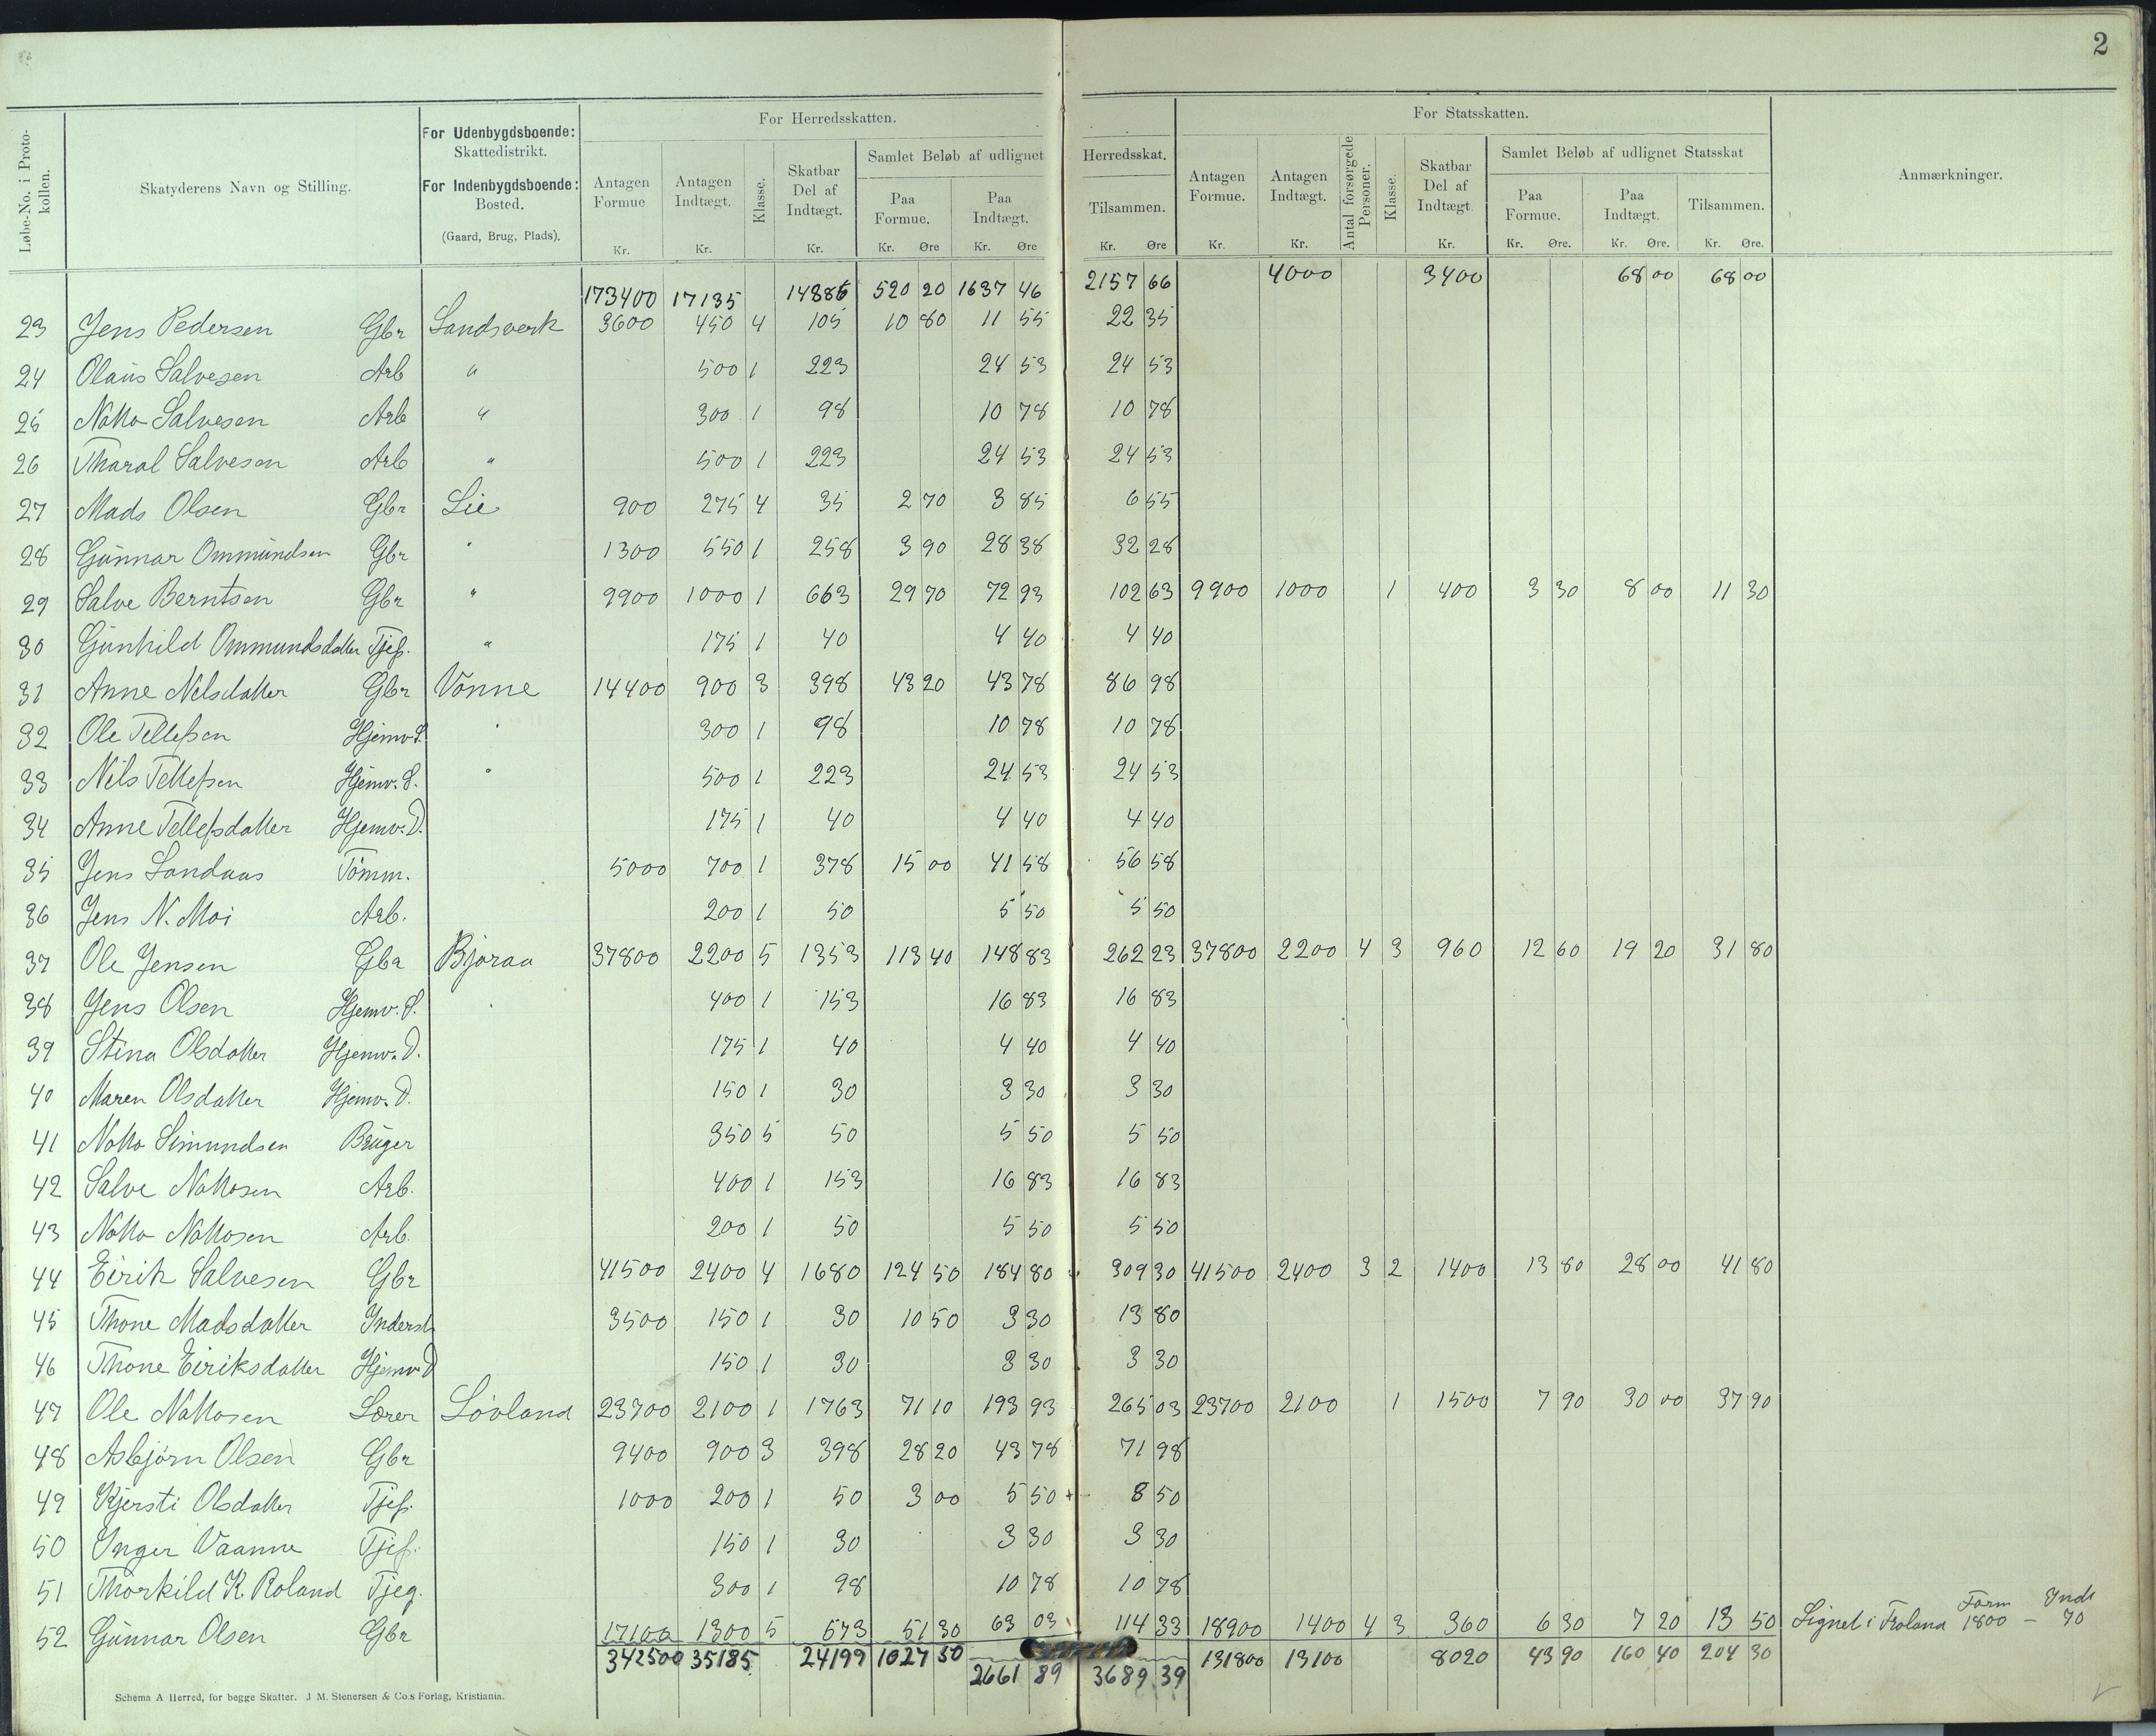 2
Løbe-No. i Protokollen.
Skatyderens Navn og Stilling.
For Udenbygdsboende: Skattedistrikt.
For Indenbygdsboende: Bosted.
(Gaard, Brug, Plads).
For Herredsskatten.
Antagen Formue Kr.
Antagen Indtægt. Kr.
Klasse.
Skatbar Del af Indtægt. Kr.
Samlet Beløb af udlignet Herredsskat.
Paa Formue. Kr. Øre
Paa Indtægt. Kr. Øre
Tilsammen. Kr. Øre
For Statsskatten.
Antagen Formue. Kr.
Antagen Indtægt. Kr.
Antal forsørgede Personer.
Klasse.
Skatbar Del af Indtægt Kr.
Samlet Beløb af udlignet Statsskat
Paa Formue. Kr. Øre.
Paa Indtægt. Kr. Øre.
Tilsammen. Kr. Øre.
Anmærkninger.
173400 17135 14886 520 20 1637 46 2157 66 4000 3400 68 00 68 00
23 Jens Pedersen Gbr Landsverk 3600 450 4 105 10 80 11 55 22 35
24 Olaus Salvesen Arb " 500 1 223 24 53 24 53
25 Notto Salvesen Arb " 300 1 98 10 78 10 78
26 Tharal Salvesen Arb " 500 1 223 24 53 24 53
27 Mads Olsen Gbr Lie 900 275 4 35 2 70 3 85 6 55
28 Gunnar Ommundsen Gbr " 1300 550 1 258 3 90 28 38 32 28
29 Salve Berntsen Gbr " 9900 1000 1 663 29 70 72 93 102 63 9900 1000 1 400 3 30 8 00 11 30
30 Gunhild Ommundsdatter Tjep. " 175 1 40 4 40 4 40
31 Anne Nelsdatter Gbr Vonne 14400 900 3 398 43 20 43 78 86 98
32 Ole Tellefsen Hjemv. S. " 300 1 98 10 78 10 78
33 Nils Tellefsen Hjemv. S. " 500 1 223 24 53 24 53
34 Anne Tellefsdatter Hjemv. D. 175 1 40 4 40 4 40
35 Jens Landaas Tömm. 5000 700 1 378 15 00 41 58 56 58
36 Jens N. Moi Arb. 200 1 50 5 50 5 50
37 Ole Jensen Gbr Bjoraa 37800 2200 5 1353 113 40 148 83 262 23 37800 2200 4 3 960 12 60 19 20 31 80
38 Jens Olsen Hjemv. S. " 400 1 153 16 83 16 83
39 Stina Olsdatter Hjemv. D. 175 1 40 4 40 4 40
40 Maren Olsdatter Hjemv. D. 150 1 30 3 30 3 30
41 Notto Simundsen Bruger 350 5 50 5 50 5 50
42 Salve Nottosen Arb. 400 1 153 16 83 16 83
43 Notto Nottosen Arb. 200 1 50 5 50 5 50
44 Eirik Salvesen Gbr 41500 2400 4 1680 124 50 184 80 309 30 41500 2400 3 2 1400 13 80 28 00 41 80
45 Thone Madsdatter Inderst 3500 150 1 30 10 50 3 30 13 80
46 Thone Eiriksdatter Hjemv D 150 1 30 3 30 3 30
47 Ole Nottosen Lærer Lövland 23700 2100 1 1763 71 10 193 93 265 03 23700 2100 1 1500 7 90 30 00 37 90
48 Asbjörn Olsen Gbr 9400 900 3 398 28 20 43 78 71 98
49 Kjersti Olsdatter Tjep. 1000 200 1 50 3 00 5 50 8 50
50 Inger Vaanne Tjep. 150 1 30 3 30 3 30
51 Thorkild K. Roland Tjeg. 300 1 98 10 78 10 78
52 Gunnar Olsen Gbr 17100 1300 5 573 51 30 63 03 114 33 18900 1400 4 3 360 6 30 7 20 13 50 Lignet i Froland Form 1800 — Indt 70
342500 35185 24199 1027 50 2661 89 3689 39 131800 13100 8020 43 90 160 40 204 30
Schema A Herred, for begge Skatter. J. M. Stenersen & Co.s Forlag, Kristiania.